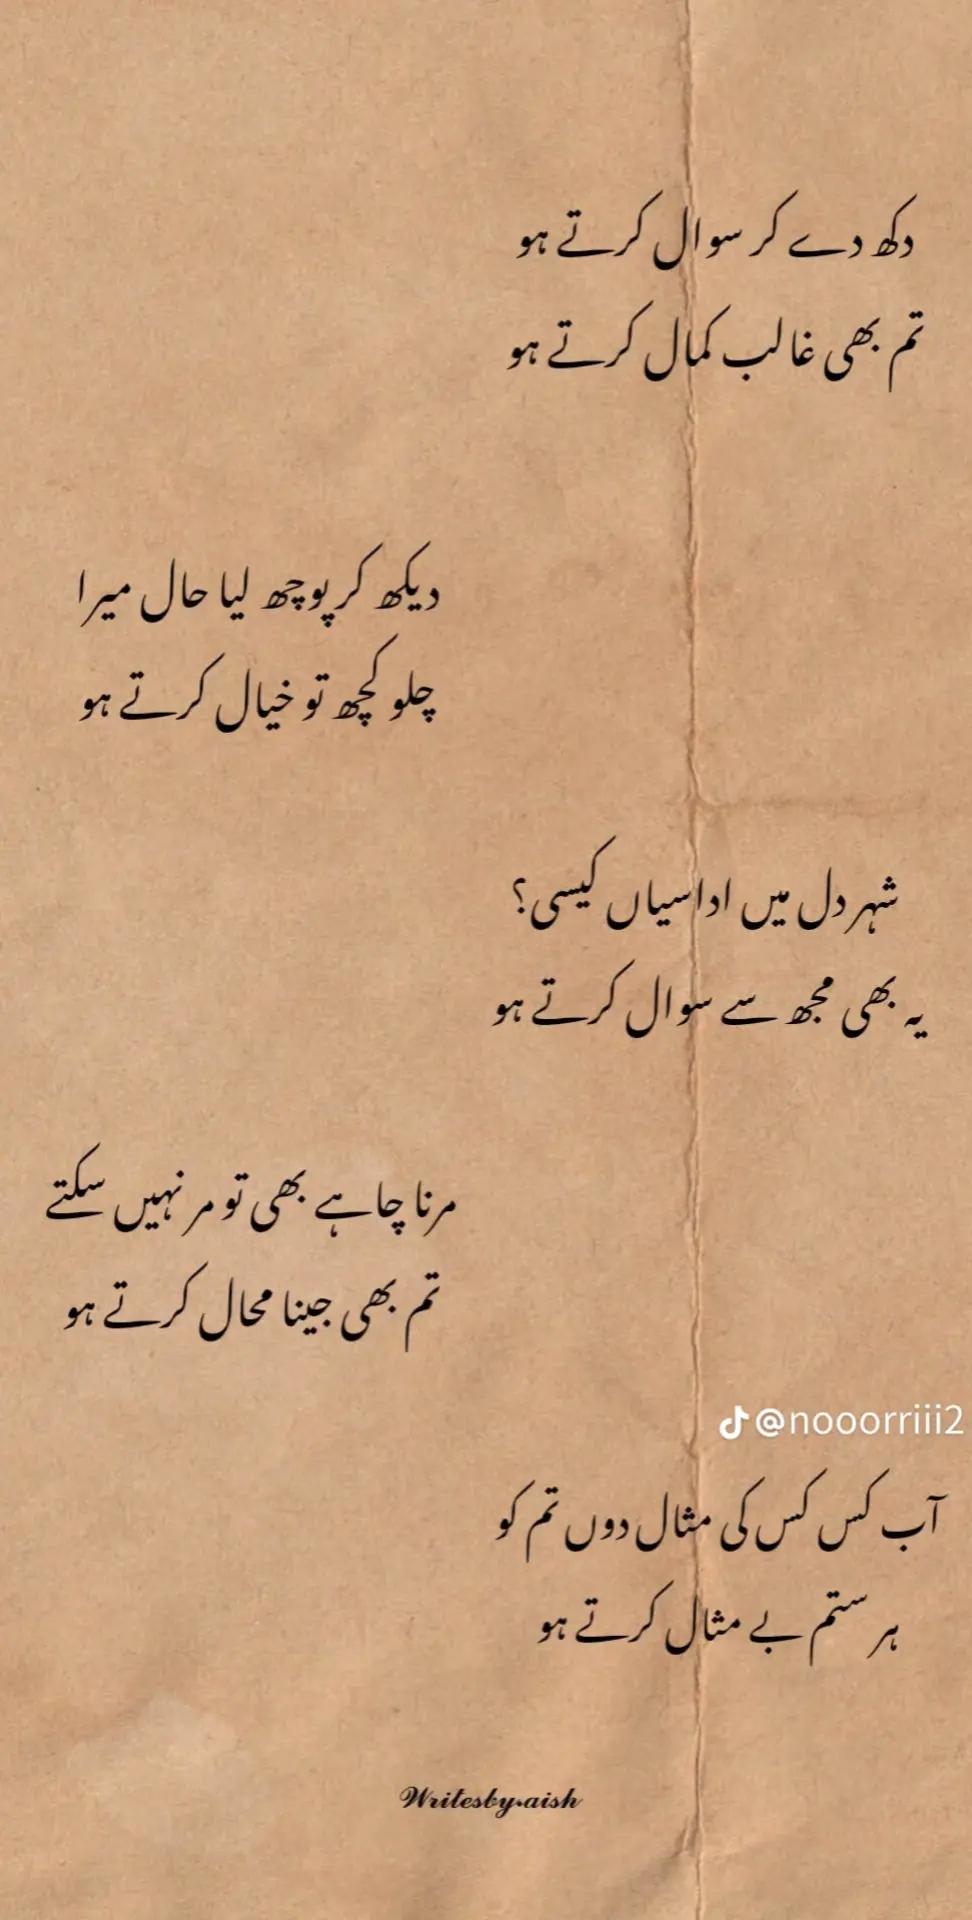 دکھ دے کر سوال کرتے ہو
تم بھی غالب کمال کرتے ہو
دیکھ کر پوچھ لیا حال میرا
چلو کچھ تو خیال کرتے ہو
شہر دل میں اداسیاں کیسی؟
یہ بھی مجھ سے سوال کرتے ہو
مرنا چاہے بھی تو مر نہیں سکتے
تم بھی جینا محال کرتے ہو
@nooorriii2
آب کس کس کی مثال دوں تم کو
ہر ستم بے مثال کرتے ہو
Writesby.aish